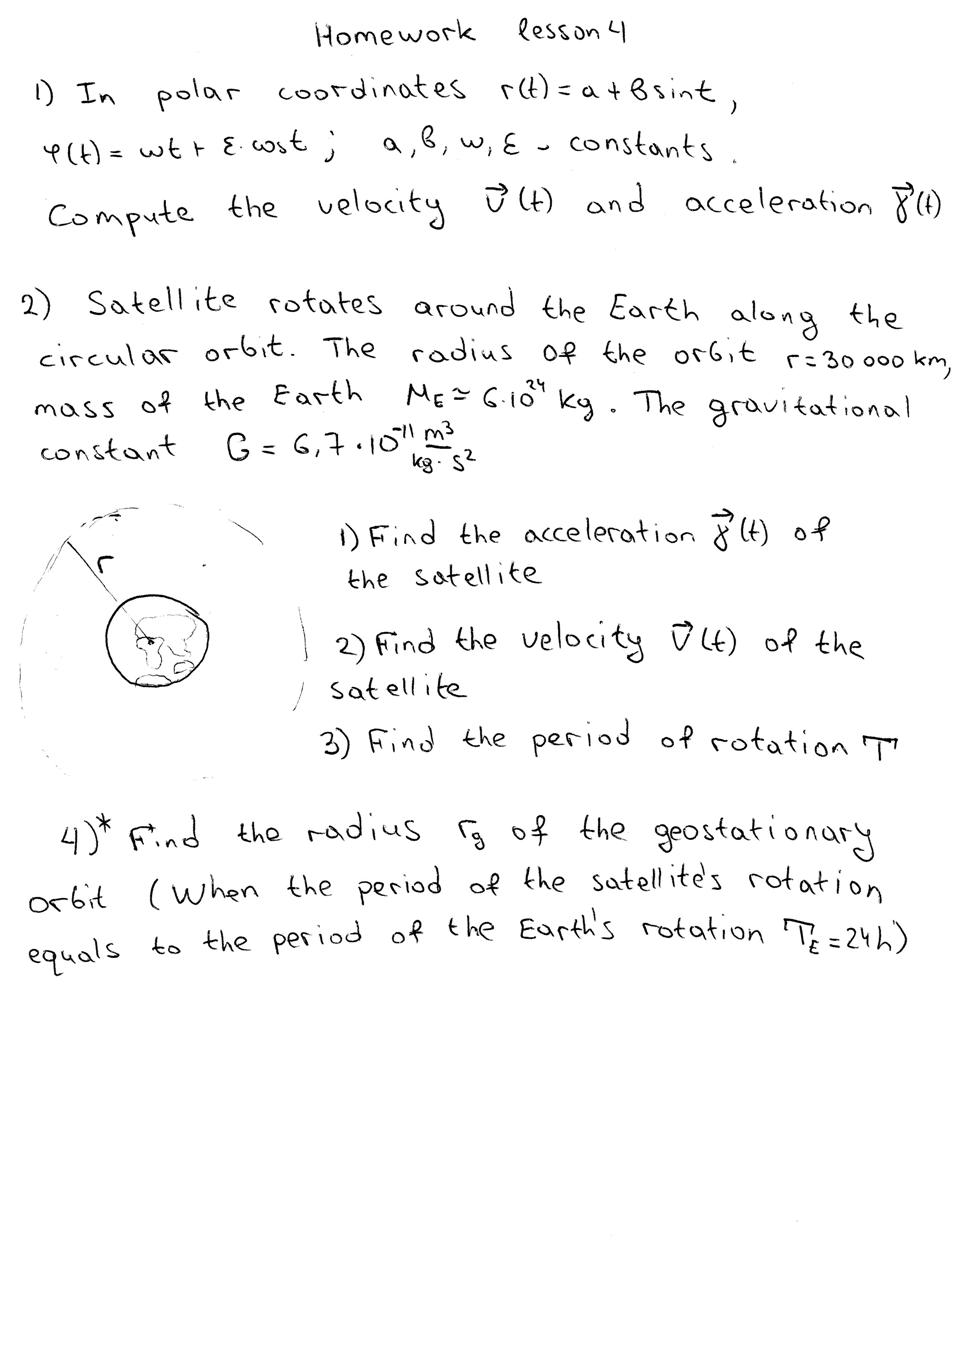 Homework lesson 4
1) In polar coordinates r(t) = a + b sint,
φ(t) = ωt + ε·cost ; a, b, ω, ε - constants.
Compute the velocity v⃗(t) and acceleration γ⃗(t)
2) Satellite rotates around the Earth along the
circular orbit. The radius of the orbit r=30 000 km,
mass of the Earth M_E ≃ 6·10²⁴ kg. The gravitational
constant G = 6,7·10⁻¹¹ m³/kg·s²
r
1) Find the acceleration γ⃗(t) of
the satellite
2) Find the velocity v⃗(t) of the
satellite
3) Find the period of rotation T
4)* Find the radius r_g of the geostationary
orbit (When the period of the satellite's rotation
equals to the period of the Earth's rotation T_E = 24h)